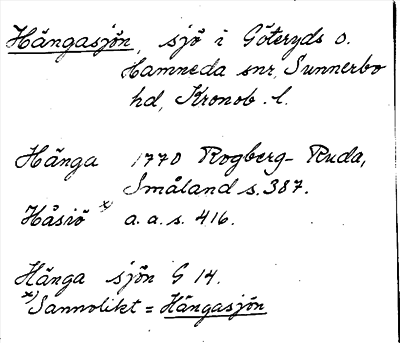 Hängasjön, sjö i Göteryds o.
Hamneda snr, Sunnerbo
hd, Kronob. l.
Hänga 1770 Rogberg-Ruda,
Småland s. 387.
Håsiö x) a. a. s. 416.
Hänga sjön G 14.
x) Sannolikt = Hängasjön